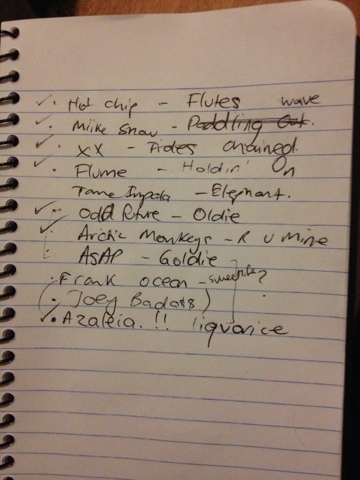 ✓ · Hot chip - Flutes wave
✓ · Miike Snow - Paddling Out.
✓ · XX - Tides chained
✓ · Flume - Holdin' On
Tame Impala - Elephant.
✓ · Odd Future - Oldie
✓ · Arctic Monkeys - R U Mine
· ASAP - Goldie
· Frank ocean - sweet life ?
( · Joey Bada$$ )
✓ · Azaleia. !! liquorice